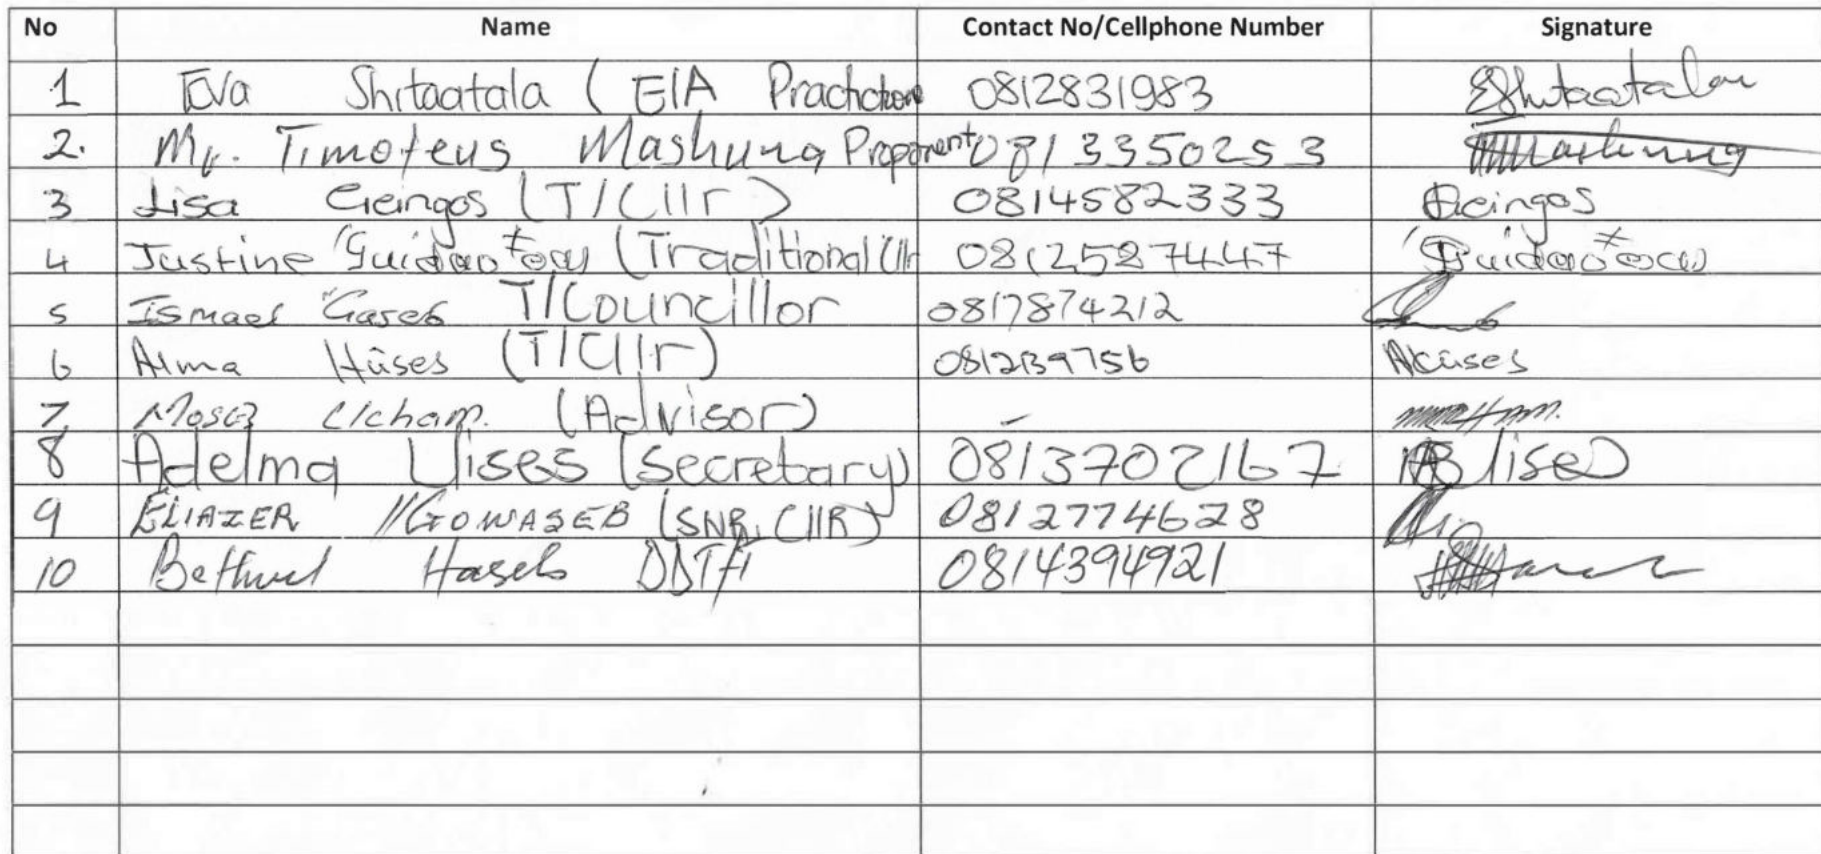 No Name Contact No/Cellphone Number Signature
1 Eva Shitaatala (EIA Practictione 0812831983 EShitaatala
2. Mr. Timoteus Mashuna Proponent 0813350253 Mashuna
3 Lisa Geingos (T/Cllr) 0814582333 Geingos
4 Justine (Traditional Cllr 0812587447
5 Ismael Gaseb T/Councillor 0817874212
6 Alma Hûses (T/Cllr)
7, Moses (Advisor) -
8 Adelma Uises (Secretary) 0813702167
9 ELIAZER //GOWASEB (SNR, CllR) 0812774628
10 Bethuel Haseb 0814394921